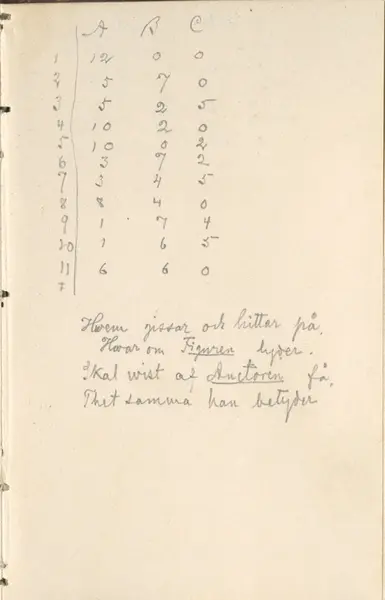 A B C
1 12 0 0
2 5 7 0
3 5 2 5
4 10 2 0
5 10 0 2
6 3 7 2
7 3 4 5
8 8 4 0
9 1 7 4
10 1 6 5
11 6 6 0
Hwem gissar och hittar på,
Hwar om Figuren lyder.
Skal wist af Auctoren få,
Thet samma han betyder